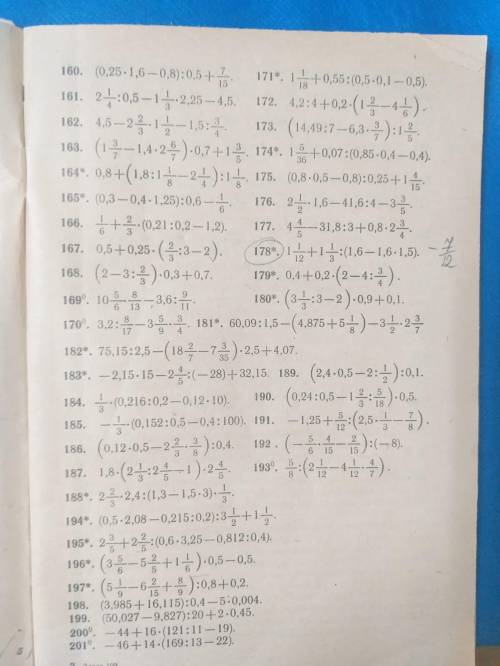 160. (0,25·1,6−0,8):0,5+7/15.
161. 2 1/4:0,5−1 1/3·2,25−4,5.
162. 4,5−2 2/3·1 1/2−1,5:3/4.
163. (1 3/7−1,4·2 6/7)·0,7+1 3/5.
164*. 0,8+(1,8:1 1/8−2 1/4):1 1/8.
165*. (0,3−0,4·1,25):0,6−1/6.
166. 1/6+2/3·(0,21:0,2−1,2).
167. 0,5+0,25·(2/3:3−2).
168. (2−3:2/3)·0,3+0,7.
169⁰. 10 5/6·8/13−3,6:9/11.
170⁰. 3,2:8/17−3 5/9·3/4.
171*. 1 1/18+0,55:(0,5·0,1−0,5).
172. 4,2:4+0,2·(1 2/3−4 1/6).
173. (14,49:7−6,3·3/7):1 2/5.
174*. 1 5/36+0,07:(0,85·0,4−0,4).
175. (0,8·0,5−0,8):0,25+1 4/15.
176. 2 1/2·1,6−41,6:4−3 3/5.
177. 4 4/5−31,8:3+0,8·2 3/4.
178*. 1 1/12+1 1/3:(1,6−1,6·1,5). −7/12
179*. 0,4+0,2·(2−4:3/4).
180*. (3 1/3:3−2)·0,9+0,1.
181*. 60,09:1,5−(4,875+5 1/8)−3 1/2·2 3/7
182*. 75,15:2,5−(18 2/7−7 3/35)·2,5+4,07.
183*. −2,15·15−2 4/5:(−28)+32,15.
184. 1/3·(0,216:0,2−0,12·10).
185. −1/3·(0,152:0,5−0,4:100).
186. (0,12·0,5−2 2/3·3/8):0,4.
187. 1,8·(2 1/3:2 4/5−1)·2 4/5.
188*. 2 2/3·2,4:(1,3−1,5·3)·1/3.
189. (2,4·0,5−2:1/2):0,1.
190. (0,24:0,5−1 2/3:5/18)·0,5.
191. −1,25+5/12:(2,5·1/3−7/8).
192. (−5/6·4/15−2/15):(−8).
193⁰. 5/8:(2 1/12−4 1/12·4/7).
194*. (0,5·2,08−0,215:0,2):3 1/2+1 1/2.
195*. 2 3/5+2 2/5:(0,6·3,25−0,812:0,4).
196*. (3 5/6−5 2/5+1 1/6)·0,5−0,5.
197*. (5 1/9−6 2/15+8/9):0,8+0,2.
198. (3,985+16,115):0,4−5·0,004.
199. (50,027−9,827):20+2·0,45.
200⁰. −44+16·(121:11−19).
201⁰. −46+14·(169:13−22).